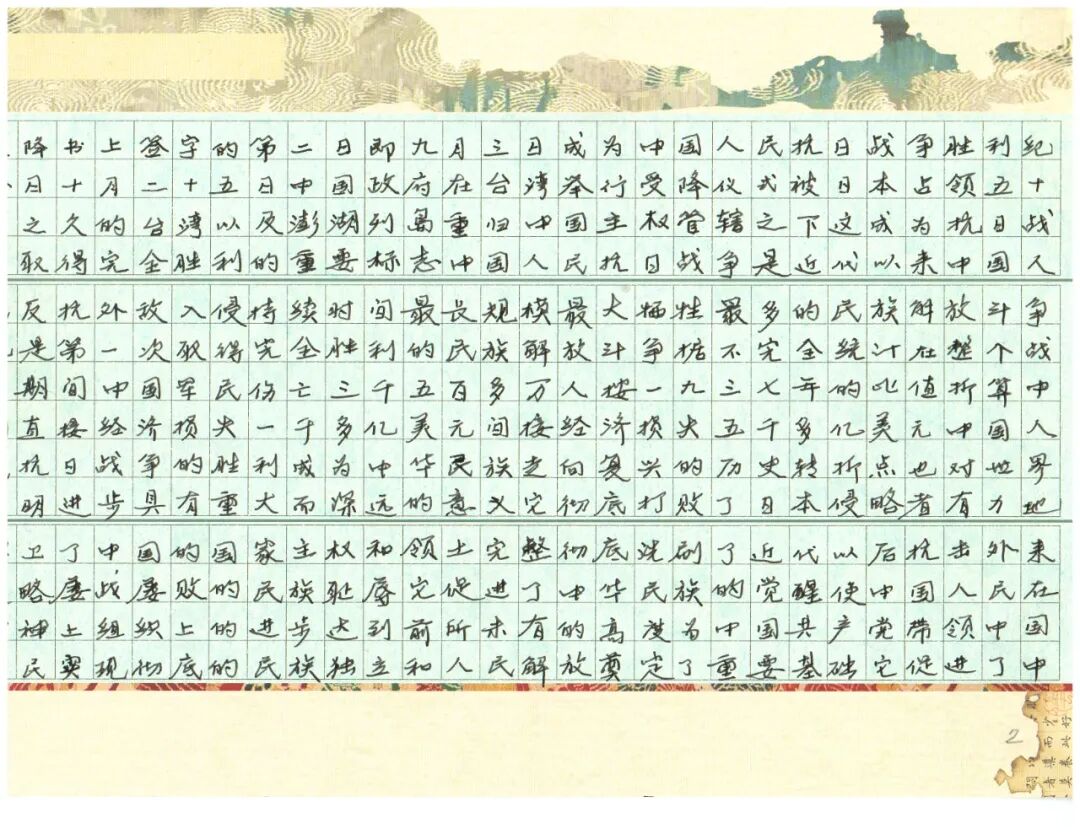 降书上签字的第二日即九月三日成为中国人民抗日战争胜利纪
日十月二十五日中国政府在台湾举行受降仪式被日本占领五十
之久的台湾以及澎湖列岛重归中国主权管辖之下这成为抗日战
取得完全胜利的重要标志中国人民抗日战争是近代以来中国人
反抗外敌入侵持续时间最长规模最大牺牲最多的民族解放斗争
是第一次取得完全胜利的民族解放斗争据不完全统计在整个战
期间中国军民伤亡三千五百多万人按一九三七年的比值折算中
直接经济损失一千多亿美元间接经济损失五千多亿美元中国人
抗日战争的胜利成为中华民族走向复兴的历史转折点也对世界
明进步具有重大而深远的意义它彻底打败了日本侵略者有力地
卫了中国的国家主权和领土完整彻底洗刷了近代以后抗击外来
略屡战屡败的民族耻辱它促进了中华民族的觉醒使中国人民在
神上组织上的进步达到前所未有的高度为中国共产党带领中国
民实现彻底的民族独立和人民解放奠定了重要基础它促进了中
2